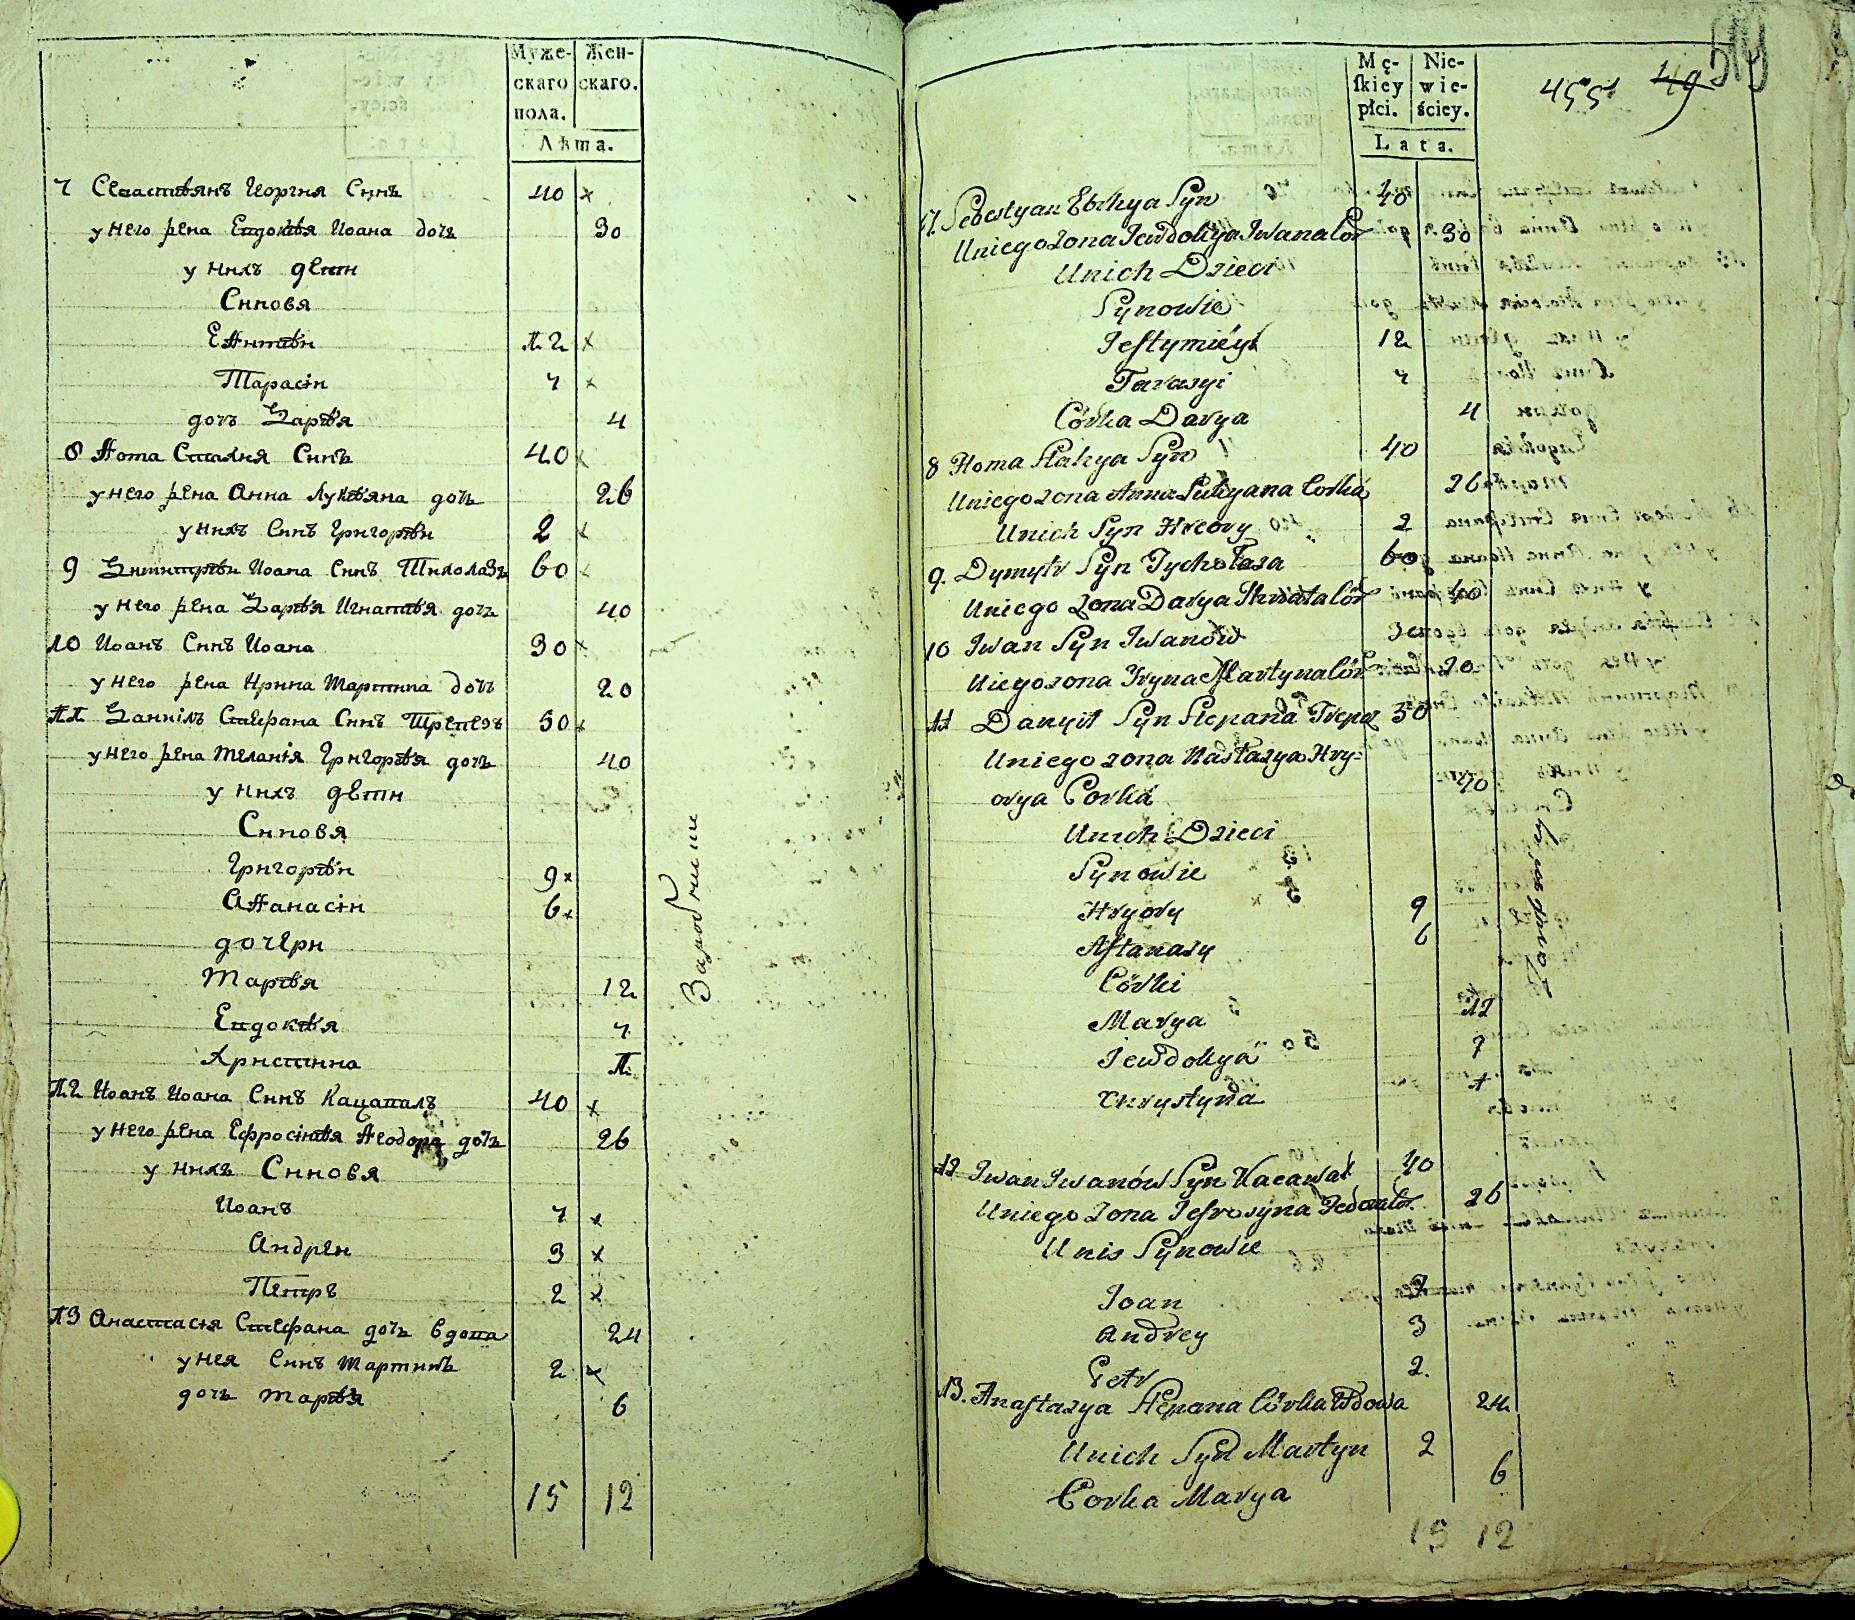 Муже-
скаго
пола.
Жен-
скаго.
Лѣта.
7 Севастіянъ Иоргия Синъ 40 x
у него жена Евдокія Иоана дочь 30
у нихъ дети
Синовя
Ефимій 12 x
Тарасій 7 x
дочь Дарія 4
8 Фома Стахия Синъ 40 x
у него жена Анна Лукіяна дочь 26
у нихъ Синъ Григорій 2 x
9 Димитрій Иоана Синъ 60 x
у него жена Дарія Игнатія дочь 40
10 Иоанъ Синъ Иоана 30 x
у него жена Ирина Мартина дочь 20
11 Даниілъ Стефана Синъ 50 x
у него жена Меланія Григорія дочь 40
у нихъ дети
Синовя
Григорій 9 x
Афанасій 6 x
дочери
Марія 12
Евдокія 7
Христина 1
12 Иоанъ Иоана Синъ Кацавалъ 40 x
у него жена Ефросінія Феодора дочь 26
у нихъ Синовя
Иоанъ 7 x
Андрей 3 x
Петръ 2 x
13 Анастасія Стефана дочь вдова 24
у нея Синъ Мартинъ 2 x
дочь Марія 6
15 12
Заробчише
Mę-
ſkiey
płci.
Nie-
wie-
ściey.
Lata.
455 49
7. Sebestyan Syn 40
Uniego zona Jewdokya Iwana Cór 30
Unich Dzieci
Synowie
Jeftymiéy 12
Tarasyi 7
Córka Darya 4
8 Homa Stahya Syn 40
Uniego zona Anna Lukyana Corka 26
Unich Syn Hreory 2
9. Dymytr Syn 60
Uniego Zona Darya Cór 40
10 Iwan Syn Iwanów 30
Uiego zona Iryna Martyna Cór 20
11 Danyił Syn Stepana 50
Uniego zona Nastazya Hry=
orya Corka 40
Unich Dzieci
Synowie
Hryory 9
Aftanazy 6
Córki
Marya 12
Jewdokya 7
Chrystyna 1
12 Iwan Iwanów Syn Kacawał 40
Uniego Zona Jefrosyna Fedora Cór 26
Unis Synowie
Joan 7
Andrey 3
Petr 2.
13. Anaſtazya Stepana Córka Wdowa 24
Unich Syn Martyn 2
Corka Marya 6
15 12